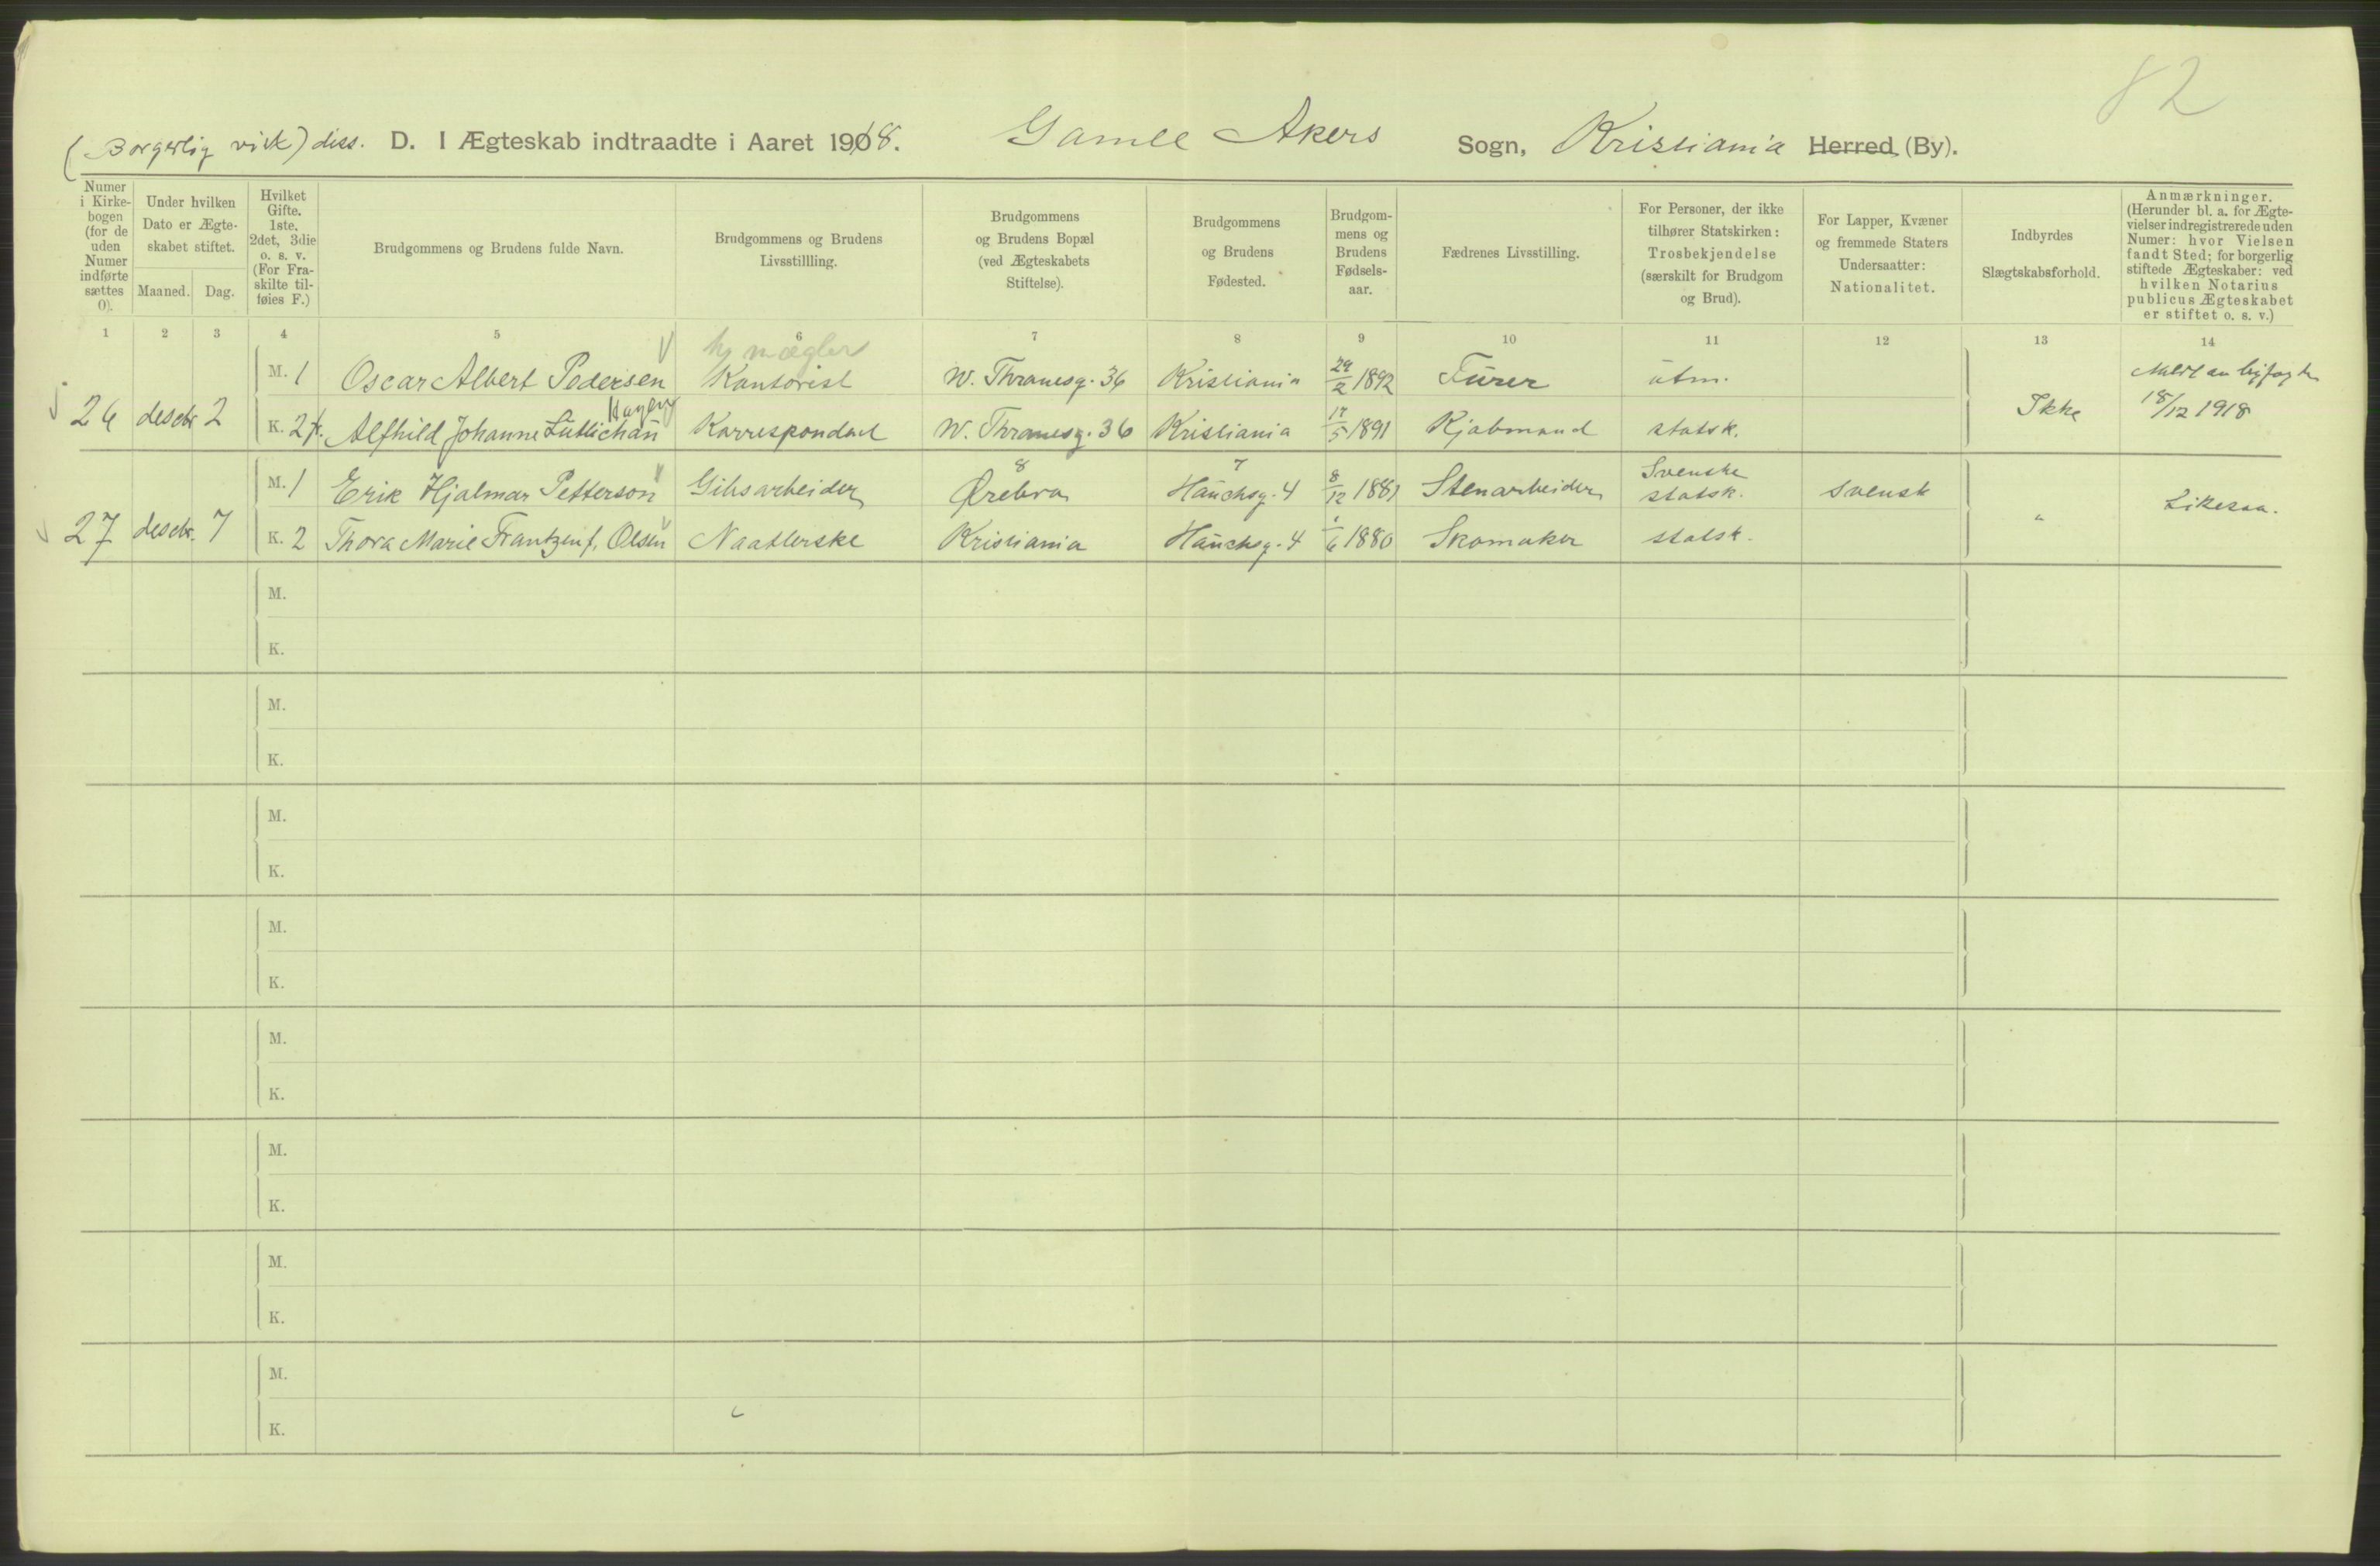 82
(Borgerlig viet) diss. D. I Ægteskab indtraadte i Aaret 1918. Gamle Akers Sogn, Kristiania Herred (By).
Numer i Kirkebogen (for de uden Numer indførte sættes 0).
Under hvilken Dato er Ægteskabet stiftet.
Maaned. Dag.
Hvilket Gifte. 1ste, 2det, 3die o. s. v. (For Fraskilte tilføies F.)
Brudgommens og Brudens fulde Navn.
Brudgommens og Brudens Livsstillling.
Brudgommens og Brudens Bopæl (ved Ægteskabets Stiftelse).
Brudgommens og Brudens Fødested.
Brudgommens og Brudens Fødselsaar.
Fædrenes Livsstilling.
For Personer, der ikke tilhører Statskirken: Trosbekjendelse (særskilt for Brudgom og Brud).
For Lapper, Kvæner og fremmede Staters Undersaatter: Nationalitet.
Indbyrdes Slægtskabsforhold.
Anmærkninger. (Herunder bl. a. for Ægtevielser indregistrerede uden Numer: hvor Vielsen fandt Sted; for borgerlig stiftede Ægteskaber: ved hvilken Notarius publicus Ægteskabet er stiftet o. s. v.)
1 2 3 4 5 6 7 8 9 10 11 12 13 14
mægler
M. 1 Oscar Albert Pedersen Kontorist W. Thranesg. 36 Kristiania 29/2 1892 Furer utm.
Hagen
26 desebr 2 K. 2 f. Alfhild Johanne Korrespondent W. Thranesg. 36 Kristiania 17/5 1891 Kjøbmand statsk. Ikke 18/12 1918
8 7 Svenske
M. 1 Erik Hjalmar Petterson Gibsarbeider Ørebro Hauchsg. 4 8/12 1881 Stenarbeider statsk. svensk
27 desebr. 7 K. 2 Thora Marie Frantzen f. Olsen Naatlerske Kristiania Hauchsg. 4 /6 1880 Skomaker statsk. " Likesaa.
M.
K.
M.
K.
M.
K.
M.
K.
M.
K.
M.
K.
M.
K.
M.
K.